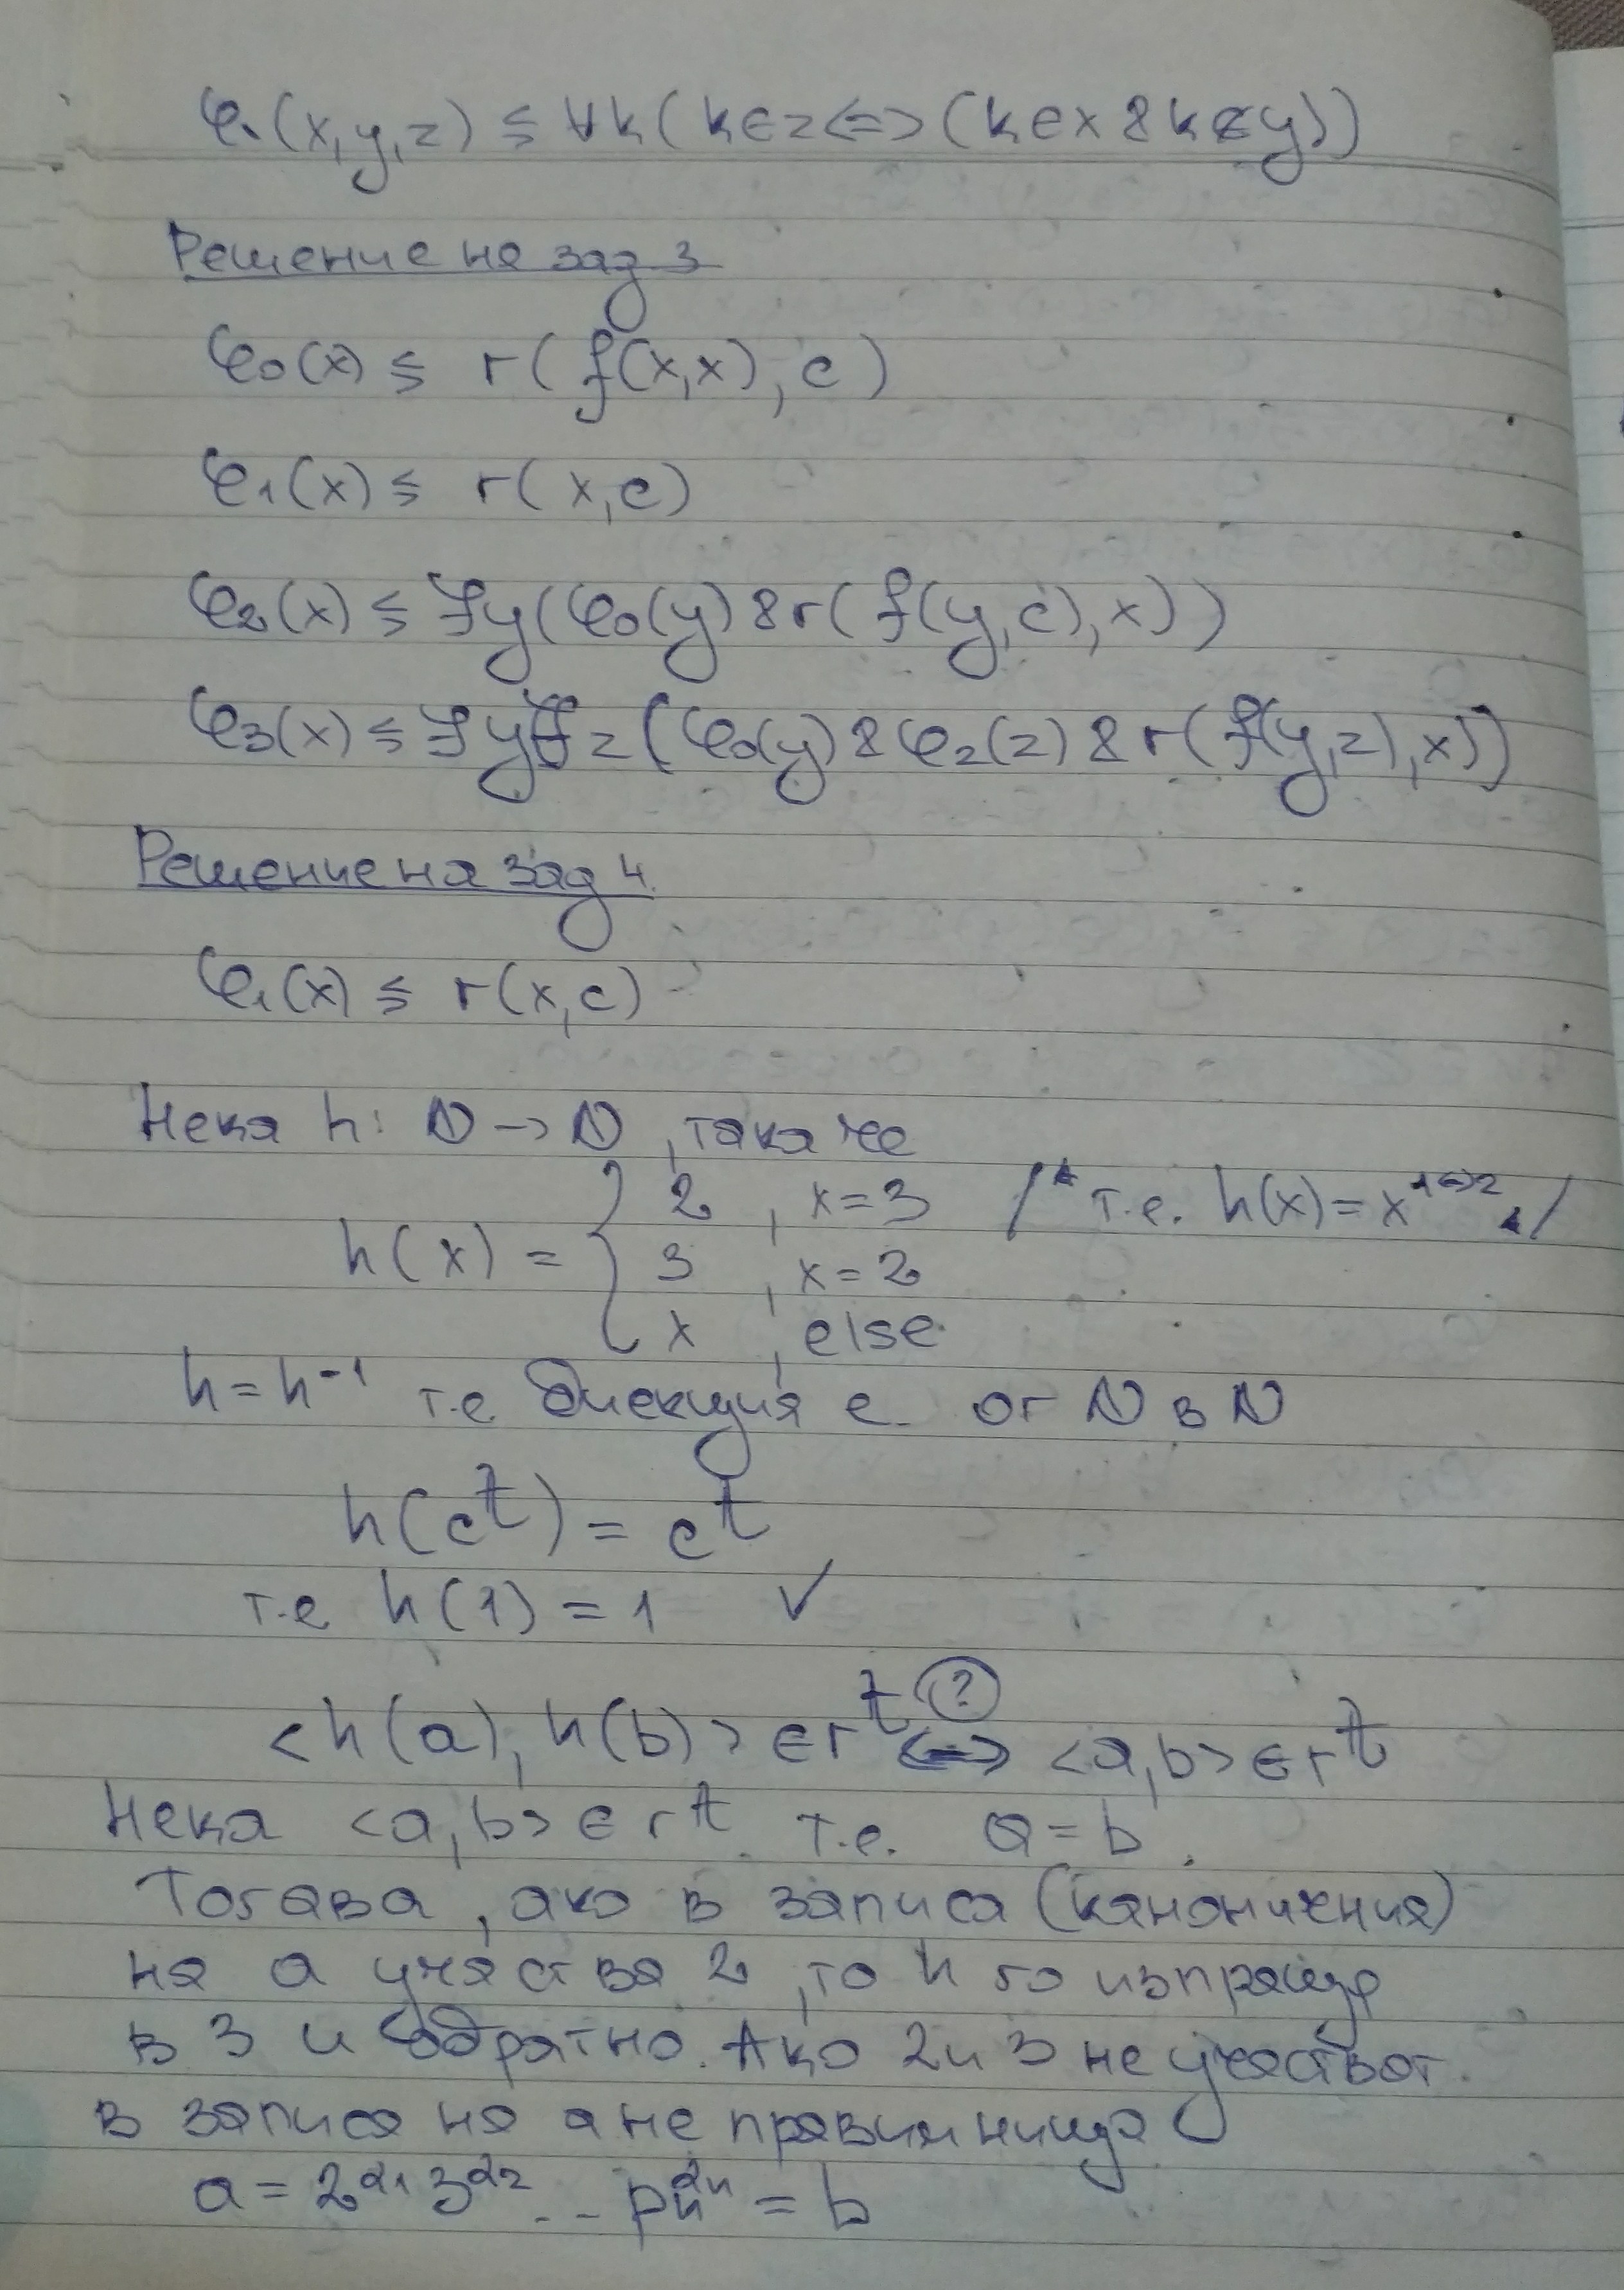 φ₁(x,y,z) ≤ ∀k(k∈z<=>(k∈x & k∈y))
Решение на зад 3
φ₀(x) ≤ r(f(x,x), c)
φ₁(x) ≤ r(x,c)
φ₂(x) ≤ ∃y(φ₀(y) & r(f(y,c),x))
φ₃(x) ≤ ∃y∃z(φ₀(y) & φ₂(z) & r(f(y,z),x))
Решение на зад 4.
φ₁(x) ≤ r(x,c)
Нека h: ℕ -> ℕ, така че
h(x) = { 2, x=3 /* т.е. h(x)=x¹<=>² */
3, x=2
x, else
h=h⁻¹ т.е биекция е от ℕ в ℕ
h(c^A) = c^A
т.е h(1) = 1 ✓
<h(a), h(b)> ∈ r^A <=>(?) <a,b> ∈ r^A
Нека <a,b> ∈ r^A т.е. a=b.
Тогава, ако в записа (каноничния)
на a участва 2, то h го изпраща
в 3 и обратно. Ако 2 и 3 не участват
в записа на a не правим нищо
a = 2^α₁ 3^α₂ ... pₙ^αₙ = b